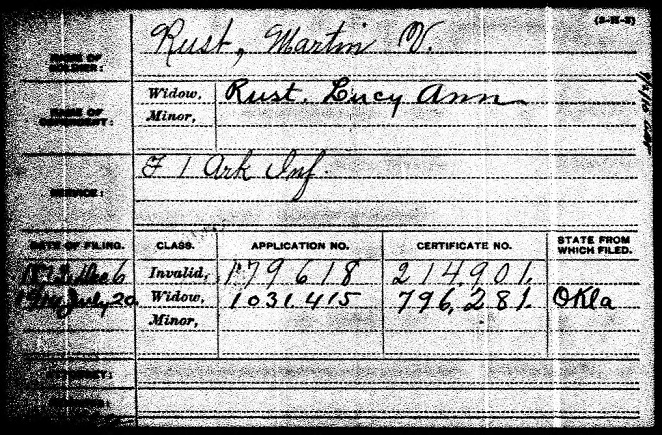 (3-M-3)
NAME OF SOLDIER: Rust, Martin V.
NAME OF DEPENDENT: Widow, Rust, Lucy Ann
Minor,
SERVICE: F 1 Ark Inf.
DATE OF FILING. CLASS. APPLICATION NO. CERTIFICATE NO. STATE FROM WHICH FILED.
Dec 6 Invalid, 179618 214,901.
July 20 Widow, 1031.415 796,281. Okla
Minor,
ATTORNEY:
REMARKS: